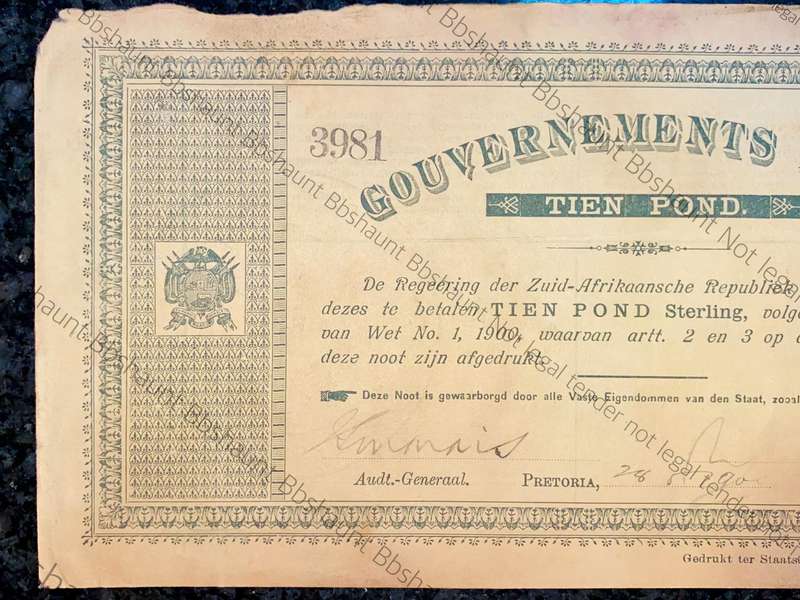 3981
GOUVERNEMENTS
TIEN POND.
De Regeering der Zuid-Afrikaansche Republiek
dezes te betalen TIEN POND Sterling, volge
van Wet No. 1, 1900, waarvan artt. 2 en 3 op
deze noot zijn afgedrukt.
Deze Noot is gewaarborgd door alle Vaste Eigendommen van den Staat, zooal
Audt.-Generaal. PRETORIA, 28
Gedrukt ter Staats
Bbshaunt Bbshaunt Bbshaunt Bbshaunt Not legal
Bbshaunt Bbshaunt Bbshaunt Bbshaunt Bbshaunt Not legal tender not legal tender
Bbshaunt Bbshaunt Bbshaunt Bbshaunt